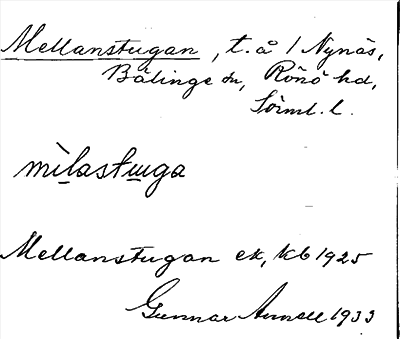 Mellanstugan, t. å / Nynäs,
Bälinge sn, Rönö hd,
Sörml. l.
mìlastuuga
Mellanstugan ek, kb 1925
Gunnar 1933